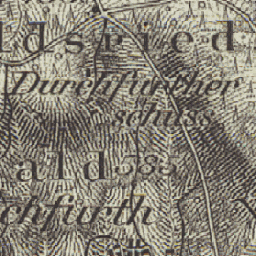 ldsried
Durchfurther
schuss
ald 585
chfurth